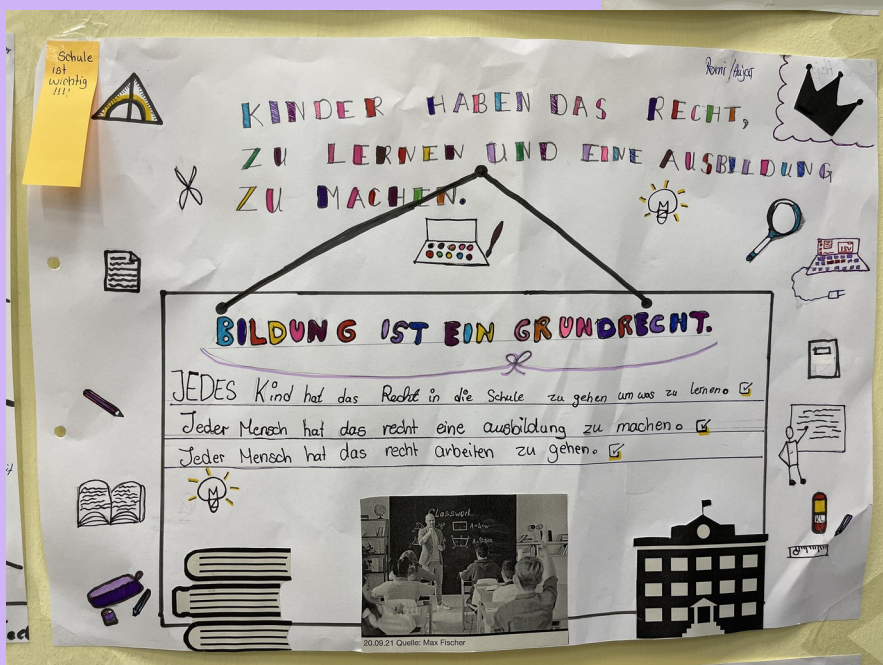 Schule
ist
wichtig
!!!!
Romi /Hajar
KINDER HABEN DAS RECHT,
ZU LERNEN UND EINE AUSBILDUNG
ZU MACHEN.
BILDUNG IST EIN GRUNDRECHT.
JEDES Kind hat das Recht in die Schule zu gehen um was zu lernen.
Jeder Mensch hat das recht eine ausbildung zu machen.
Jeder Mensch hat das recht arbeiten zu gehen.
Classwork
20.09.21 Quelle: Max Fischer